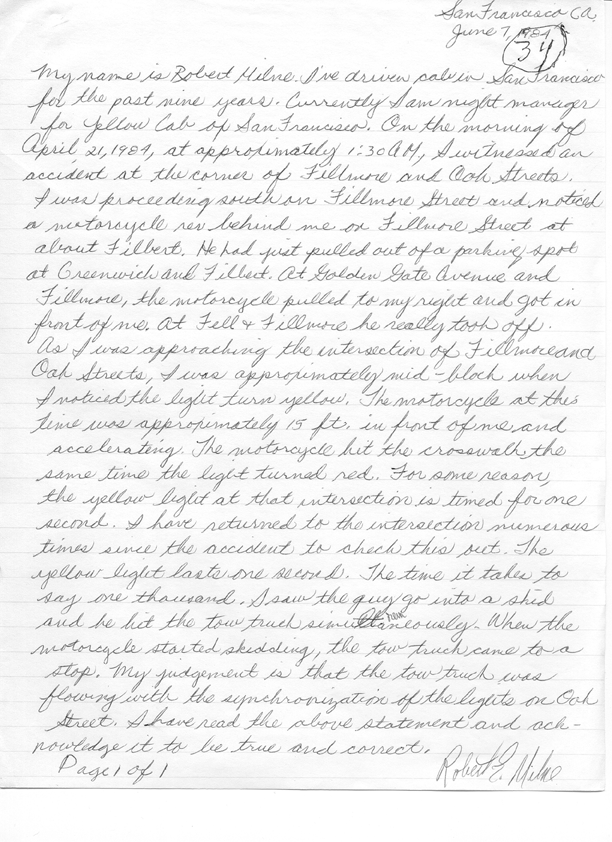 San Francisco CA.
June 7, 1984
34
My name is Robert Milne. I've driven cab in San Francisco
for the past nine years. Currently I am night manager
for Yellow Cab of San Francisco. On the morning of
April 21, 1984, at approximately 1:30 AM, I witnessed an
accident at the corner of Fillmore and Oak Streets.
I was proceeding south on Fillmore Street and noticed
a motorcycle rev behind me on Fillmore Street at
about Filbert. He had just pulled out of a parking spot
at Greenwich and Filbert. At Golden Gate Avenue and
Fillmore, the motorcycle pulled to my right and got in
front of me. At Fell & Fillmore he really took off.
As I was approaching the intersection of Fillmore and
Oak Streets, I was approximately mid-block when
I noticed the light turn yellow. The motorcycle at this
time was approximately 15 ft. in front of me and
accelerating. The motorcycle hit the crosswalk the
same time the light turned red. For some reason,
the yellow light at that intersection is timed for one
second. I have returned to the intersection numerous
times since the accident to check this out. The
yellow light lasts one second. The time it takes to
say one thousand. I saw the guy go into a skid
and he hit the tow truck simultaneously. When the
motorcycle started skidding, the tow truck came to a
stop. My judgement is that the tow truck was
flowing with the synchronization of the lights on Oak
Street. I have read the above statement and ack-
nowledge it to be true and correct.
Page 1 of 1
Robert E. Milne